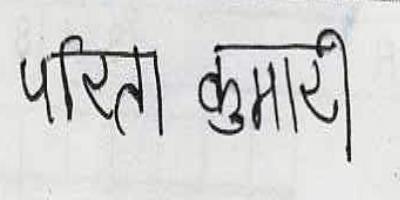 परिता कुमारी